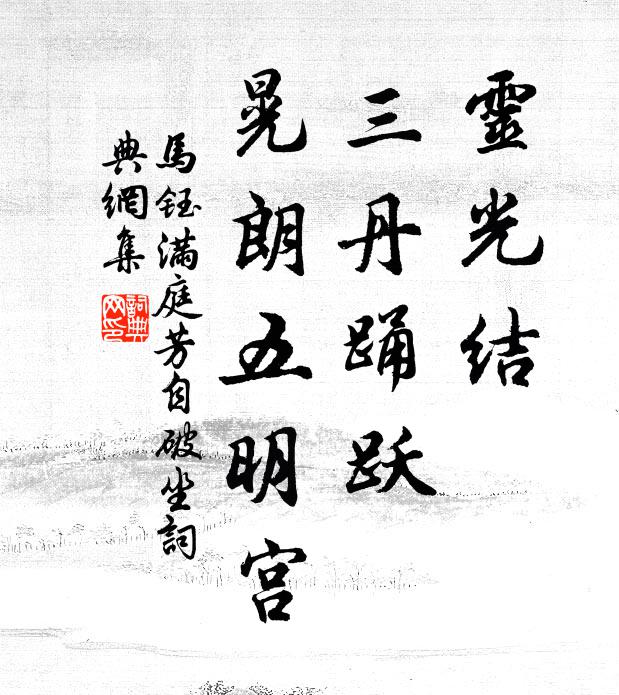 靈光结
三丹踊跃
晃朗五明宫
馬鈺滿庭芳自破坐詞
典網集
詞典网印